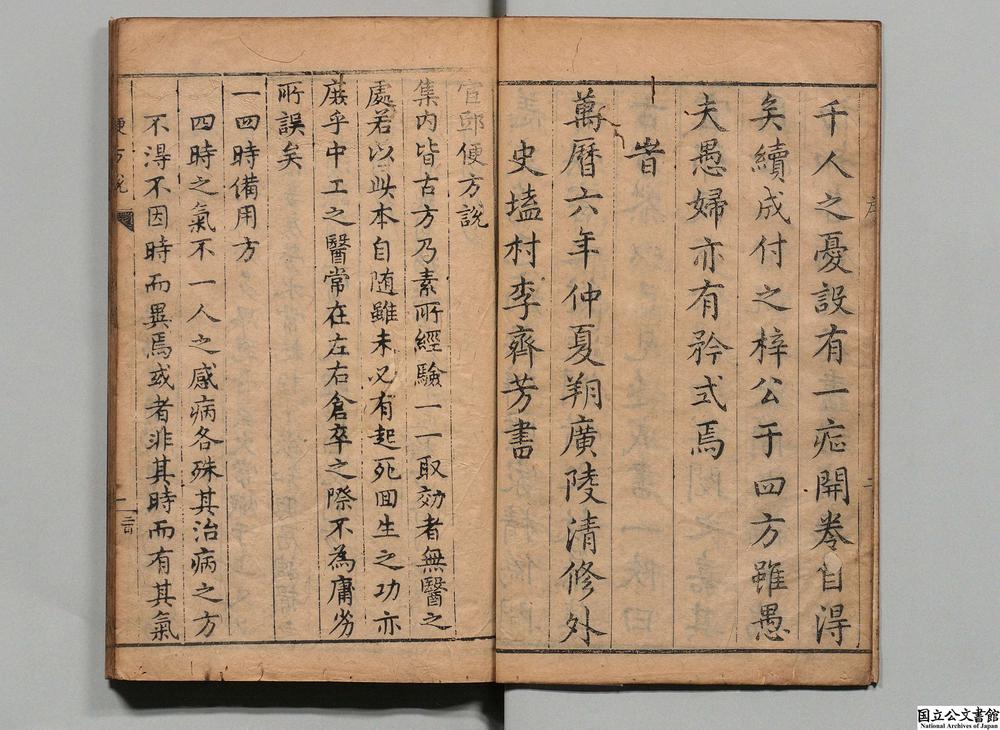 千人之憂設有一症開卷自得
矣續成付之梓公于四方雖愚
夫愚婦亦有矜式焉
旹
萬曆六年仲夏朔廣陵清修外
史壒村李齊芳書
序
二
宦邸便方說
集內皆古方乃素所經驗一一取効者無醫之
處若以此本自随雖未必有起死回生之功亦
庻乎中工之醫常在左右倉卒之際不為庸劣
所誤矣
一四時備用方
四時之氣不一人之感病各殊其治病之方
不淂不因時而異焉或者非其時而有其氣
便方說
一
国立公文書館
National Archives of Japan